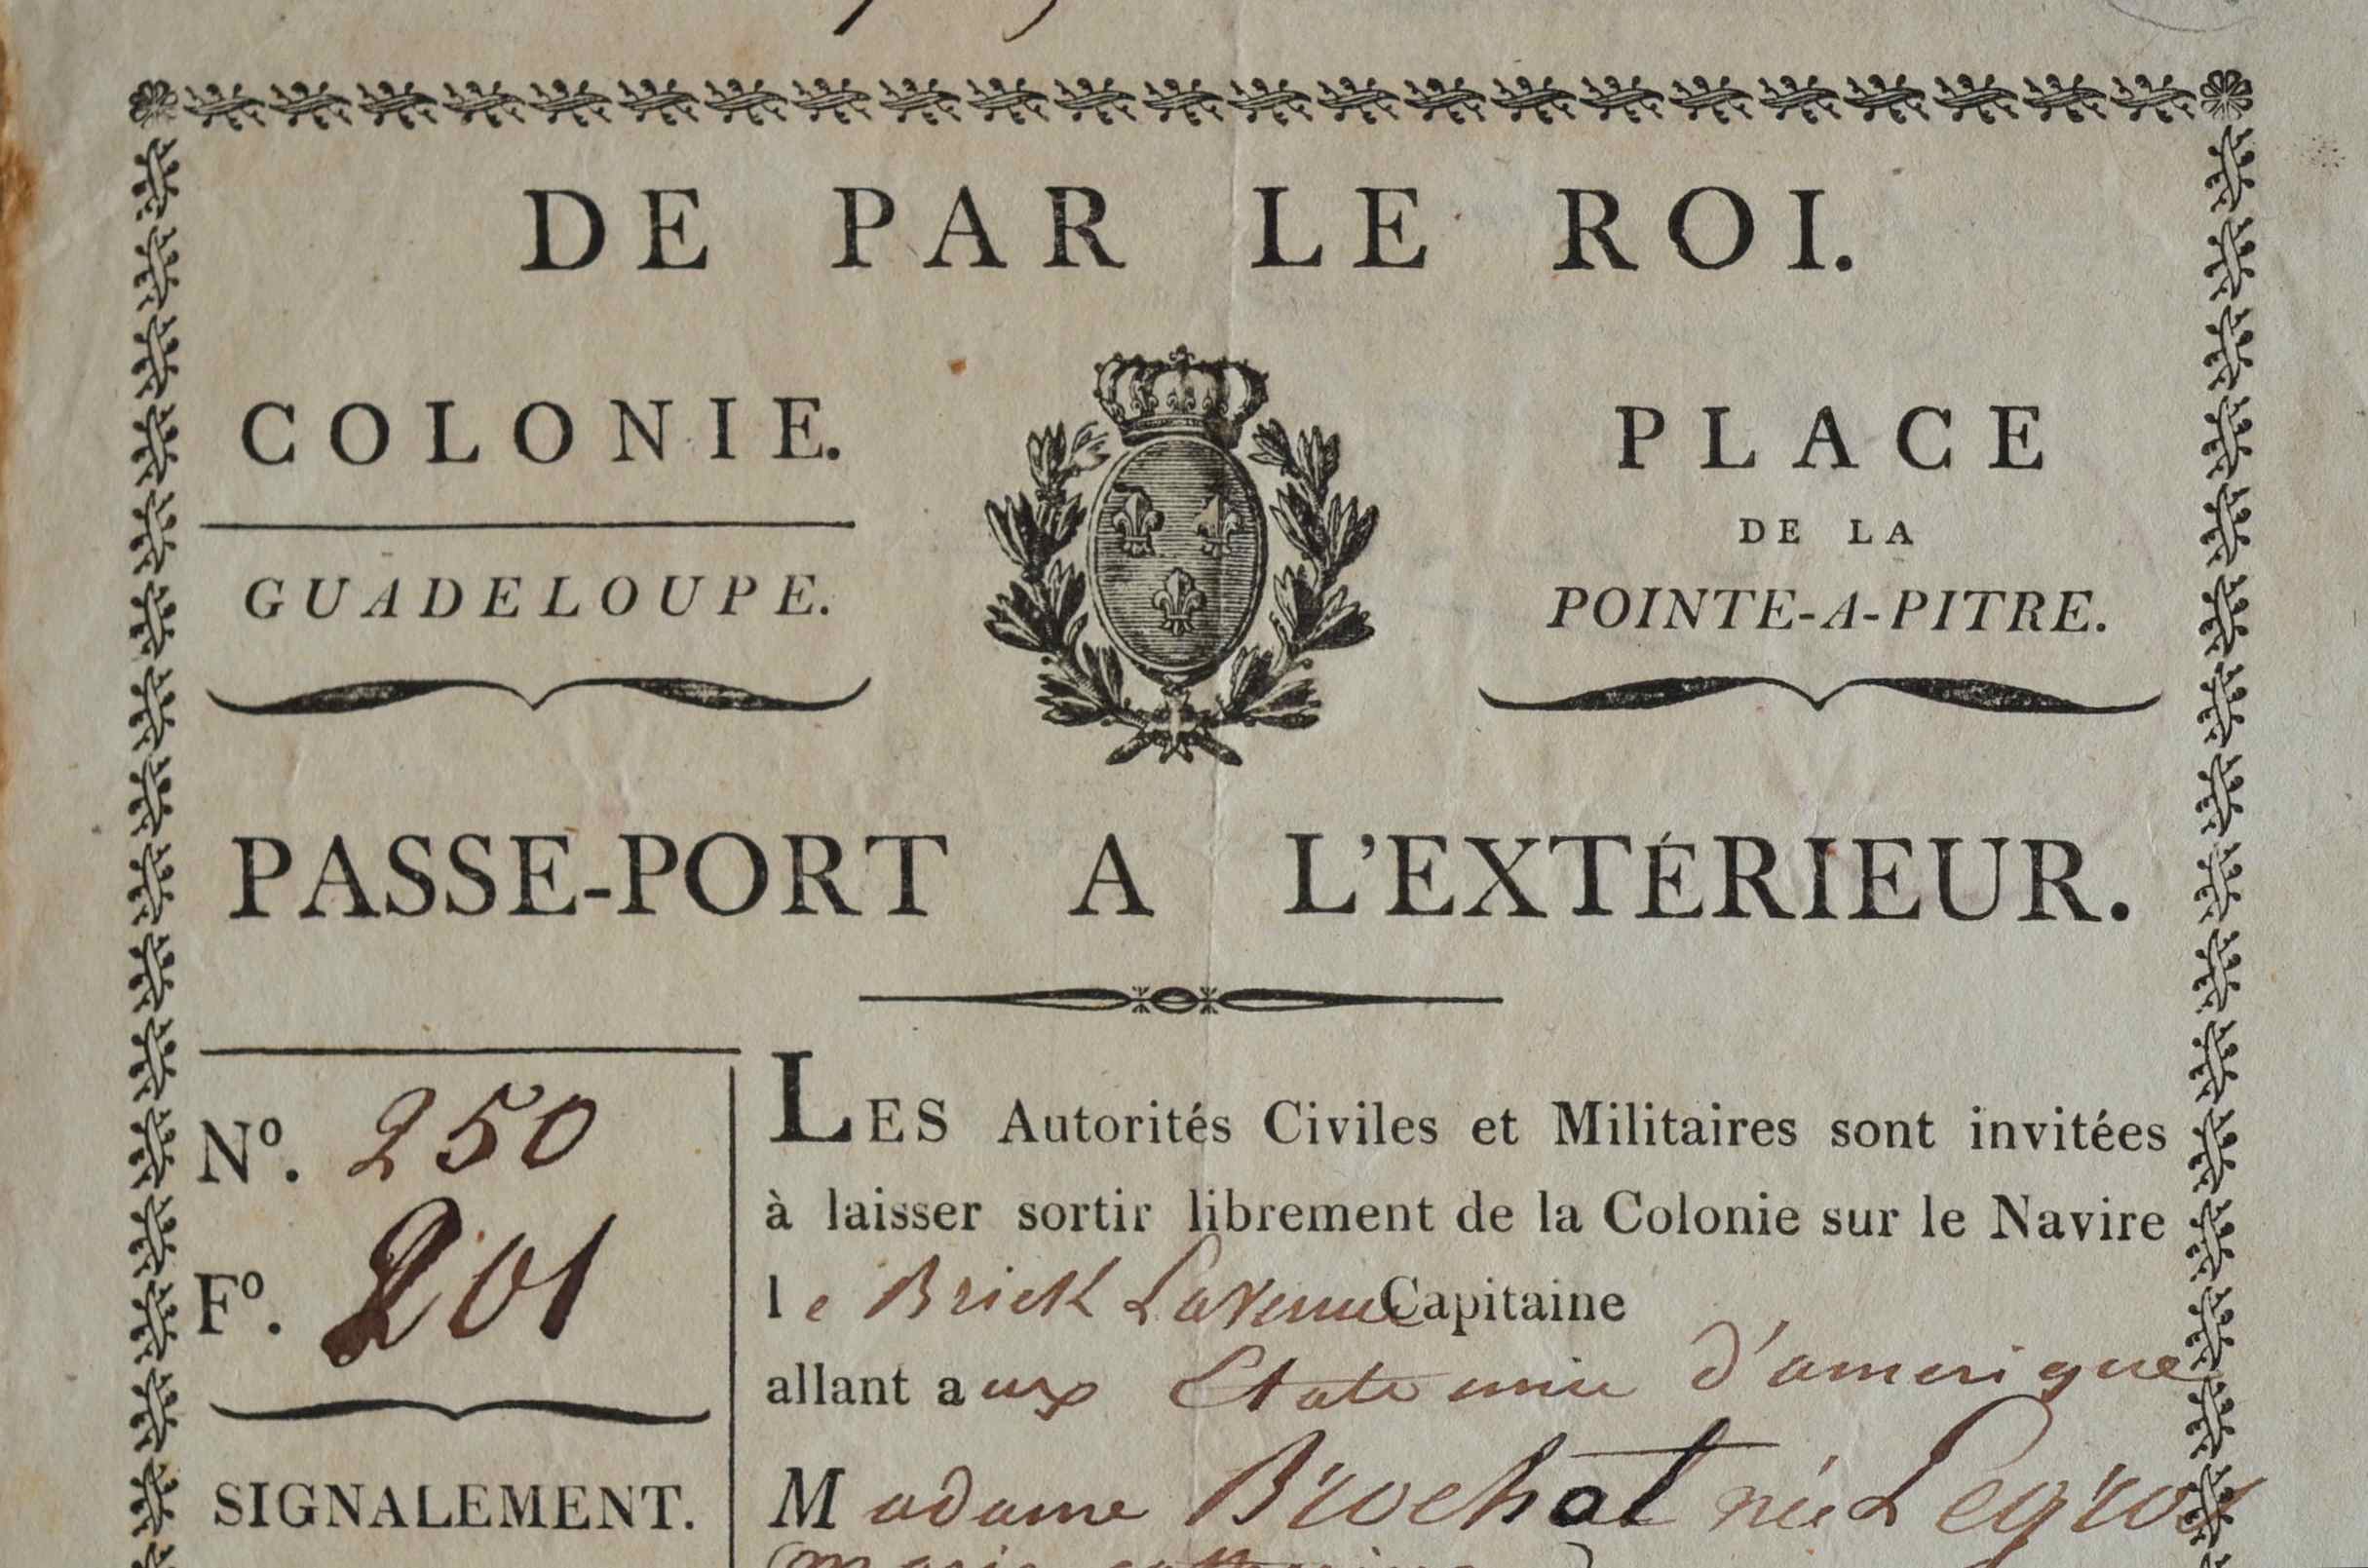 DE PAR LE ROI.
COLONIE.
GUADELOUPE.
PLACE
DE LA
POINTE-A-PITRE.
PASSE-PORT A L'EXTÉRIEUR.
Nº. 250
Fº. 201
SIGNALEMENT.
LES Autorités Civiles et Militaires sont invitées
à laisser sortir librement de la Colonie sur le Navire
le Brick Capitaine
allant aux Etats unis d'amerique
Madame Brochat née Legros